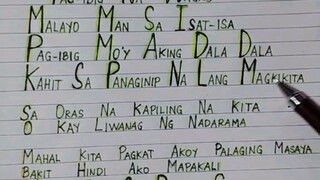 PAG-IBIG NA WAGAS
MALAYO MAN SA ISAT-ISA
PAG-IBIG MO'Y AKING DALA DALA
KAHIT SA PANAGINIP NA LANG MAGKIKITA
SA ORAS NA KAPILING NA KITA
O KAY LIWANAG NG NADARAMA
MAHAL KITA PAGKAT AKOY PALAGING MASAYA
BAKIT HINDI AKO MAPAKALI